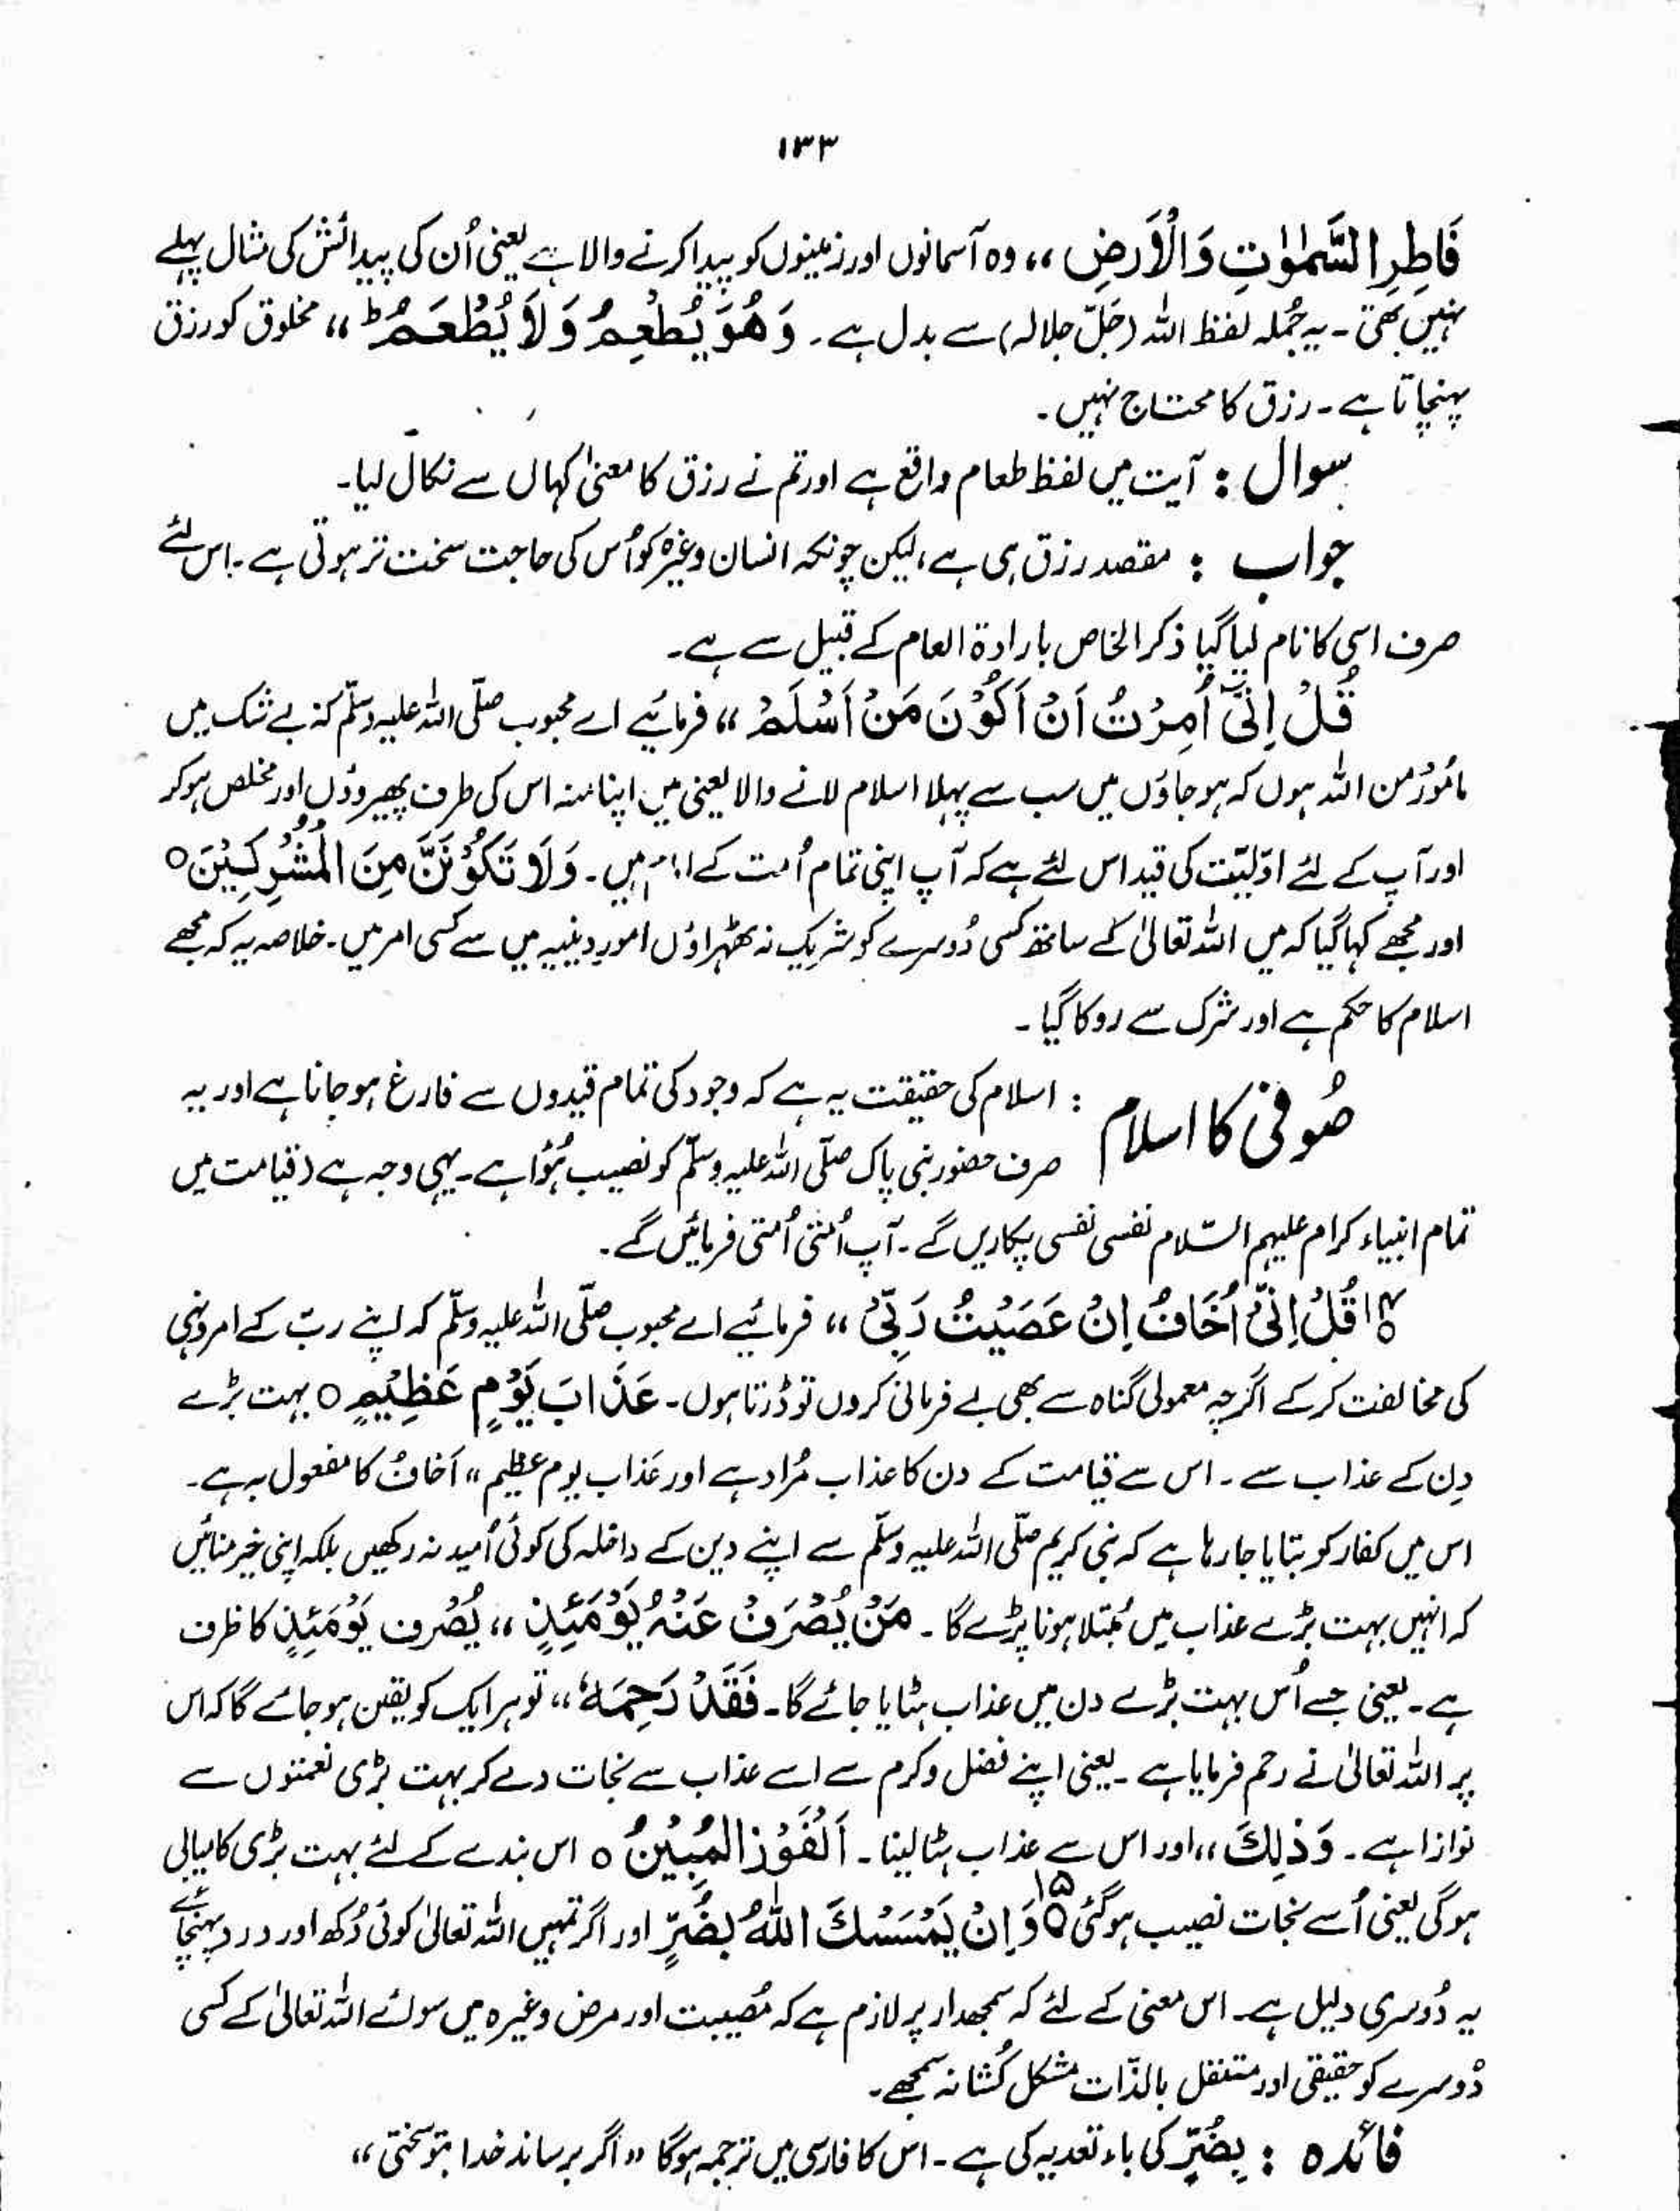 ۱۳۳
فَاطِرِ السَّمٰوٰتِ وَالْاَرْضِ ،، وہ آسمانوں اور زمینوں کو پیدا کرنے والا ہے یعنی اُن کی پیدائش کی مثال پہلے
نہیں تھی ۔ یہ جُملہ لفظ اللہ (جَلّ جلالہ) سے بدل ہے ۔ وَ هُوَ يُطْعِمُ وَ لَا يُطْعَمُ ؕ ،، مخلوق کو رزق
پہنچاتا ہے ۔ رزق کا محتاج نہیں ۔
سوال : آیت میں لفظ طعام واقع ہے اور تم نے رزق کا معنیٰ کہاں سے نکال لیا ۔
جواب : مقصد رزق ہی ہے ، لیکن چونکہ انسان وغیرہ کو اُس کی حاجت سخت تر ہوتی ہے ۔ اس لئے
صرف اسی کا نام لیا گیا ذکر الخاص بارادۃ العام کے قبیل سے ہے ۔
قُلْ اِنِّیْٓ اُمِرْتُ اَنْ اَکُوْنَ مَنْ اَسْلَمَ ،، فرمائیے اے محبوب صلّی اللہ علیہ وسلّم کہ بے شک میں
مأمُوْر من اللہ ہوں کہ ہو جاؤں میں سب سے پہلا اسلام لانے والا یعنی میں اپنا منہ اس کی طرف پھیر دوں اور مخلص ہو کر
اور آپ کے لئے اوّلیّت کی قید اس لئے ہے کہ آپ اپنی تمام اُمت کے امام ہیں ۔ وَلَا تَکُوْنَنَّ مِنَ الْمُشْرِکِیْنَ ○
اور مجھے کہا گیا کہ میں اللہ تعالیٰ کے ساتھ کسی دُوسرے کو شریک نہ ٹھہراؤں امور دینیہ میں سے کسی امر میں ۔ خلاصہ یہ کہ مجھے
اسلام کا حکم ہے اور شرک سے روکا گیا ۔
صُوفی کا اسلام : اسلام کی حقیقت یہ ہے کہ وجود کی تمام قیدوں سے فارغ ہو جانا ہے اور یہ
صرف حضور نبی پاک صلّی اللہ علیہ وسلّم کو نصیب ہُوَا ہے ۔ یہی وجہ ہے ( قیامت میں
تمام انبیاء کرام علیہم السّلام نفسی نفسی پکاریں گے ۔ آپ اُمتی اُمتی فرمائیں گے ۔
۱۴ قُلْ اِنِّیْٓ اَخَافُ اِنْ عَصَیْتُ رَبِّیْ ،، فرمائیے اے محبوب صلّی اللہ علیہ وسلّم کہ اپنے ربّ کے امر و نہی
کی مخالفت کر کے اگرچہ معمولی گناہ سے بھی بے فرمانی کروں تو ڈرتا ہوں ۔ عَذَابَ یَوْمٍ عَظِیْمٍ ○ بہت بڑے
دِن کے عذاب سے ۔ اس سے قیامت کے دن کا عذاب مُراد ہے اور عَذاب یوم عظیم ،، اَخافُ کا مفعول بہ ہے ۔
اس میں کفار کو بتایا جا رہا ہے کہ نبی کریم صلّی اللہ علیہ وسلّم سے اپنے دین کے داخلہ کی کوئی اُمید نہ رکھیں بلکہ اپنی خیر منائیں
کہ انہیں بہت بڑے عذاب میں مُبتلا ہونا پڑے گا ۔ مَنْ یُّصْرَفْ عَنْهُ یَوْمَئِذٍ ،، یُصْرف یَوْمَئِذٍ کا ظرف
ہے ۔ یعنی جسے اُس بہت بڑے دن میں عذاب ہٹایا جائے گا ۔ فَقَدْ رَحِمَهٗ ،، تو ہر ایک کو یقین ہو جائے گا کہ اس
پر اللہ تعالیٰ نے رحم فرمایا ہے ۔ یعنی اپنے فضل و کرم سے اسے عذاب سے نجات دے کر بہت بڑی نعمتوں سے
نوازا ہے ۔ وَ ذٰلِكَ ،، اور اس سے عذاب ہٹا لینا ۔ اَلْفَوْزُ الْمُبِیْنُ ○ اس بندے کے لئے بہت بڑی کامیابی
ہو گی یعنی اُسے نجات نصیب ہو گئی ۱۵ وَ اِنْ یَّمْسَسْكَ اللّٰهُ بِضُرٍّ اور اگر تمہیں اللہ تعالیٰ کوئی دُکھ اور درد پہنچائے
یہ دُوسری دلیل ہے ۔ اس معنی کے لئے کہ سمجھدار پر لازم ہے کہ مُصیبت اور مرض وغیرہ میں سوائے اللہ تعالیٰ کے کسی
دُوسرے کو حقیقی اور مستقل بالذّات مشکل کُشا نہ سمجھے ۔
فائدہ : بِضُرٍّ کی باء تعدیہ کی ہے ۔ اس کا فارسی میں ترجمہ ہوگا ,, اگر برساند خدا بتو سختی ،،